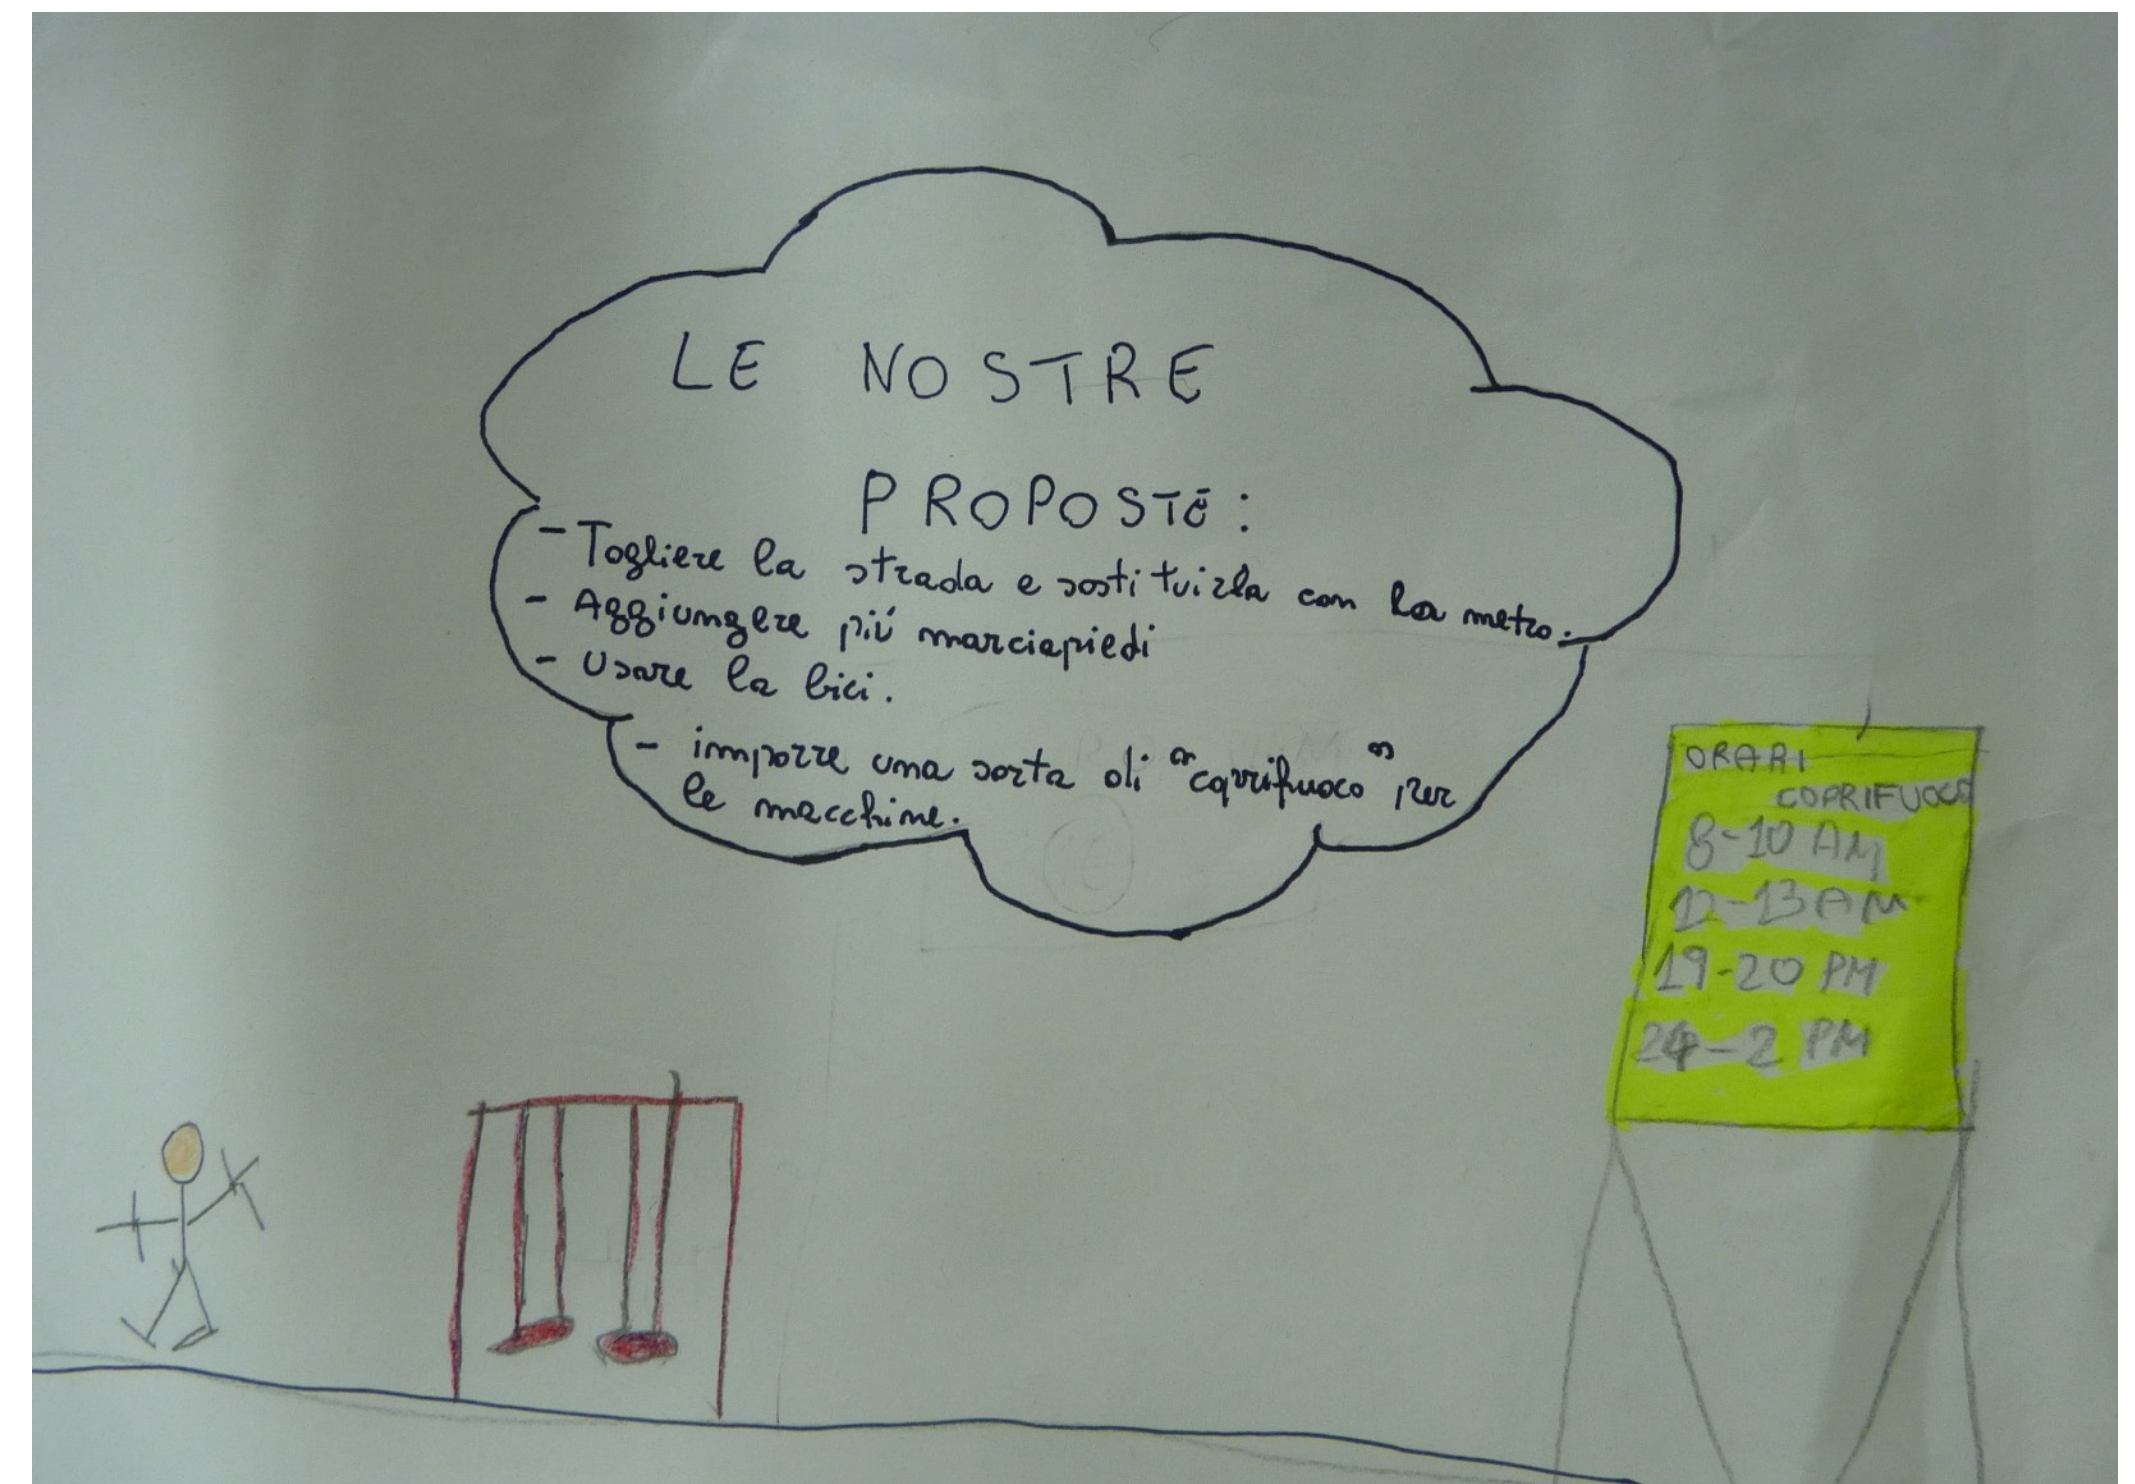 LE NOSTRE
PROPOSTE:
- Togliere la strada e sostituirla con la metro.
- Aggiungere più marciapiedi
- Usare la bici.
- imporre una sorta di "coprifuoco" per
le macchine.
ORARI
COPRIFUOCO
8-10 AM
12-13 AM
19-20 PM
24-2 PM